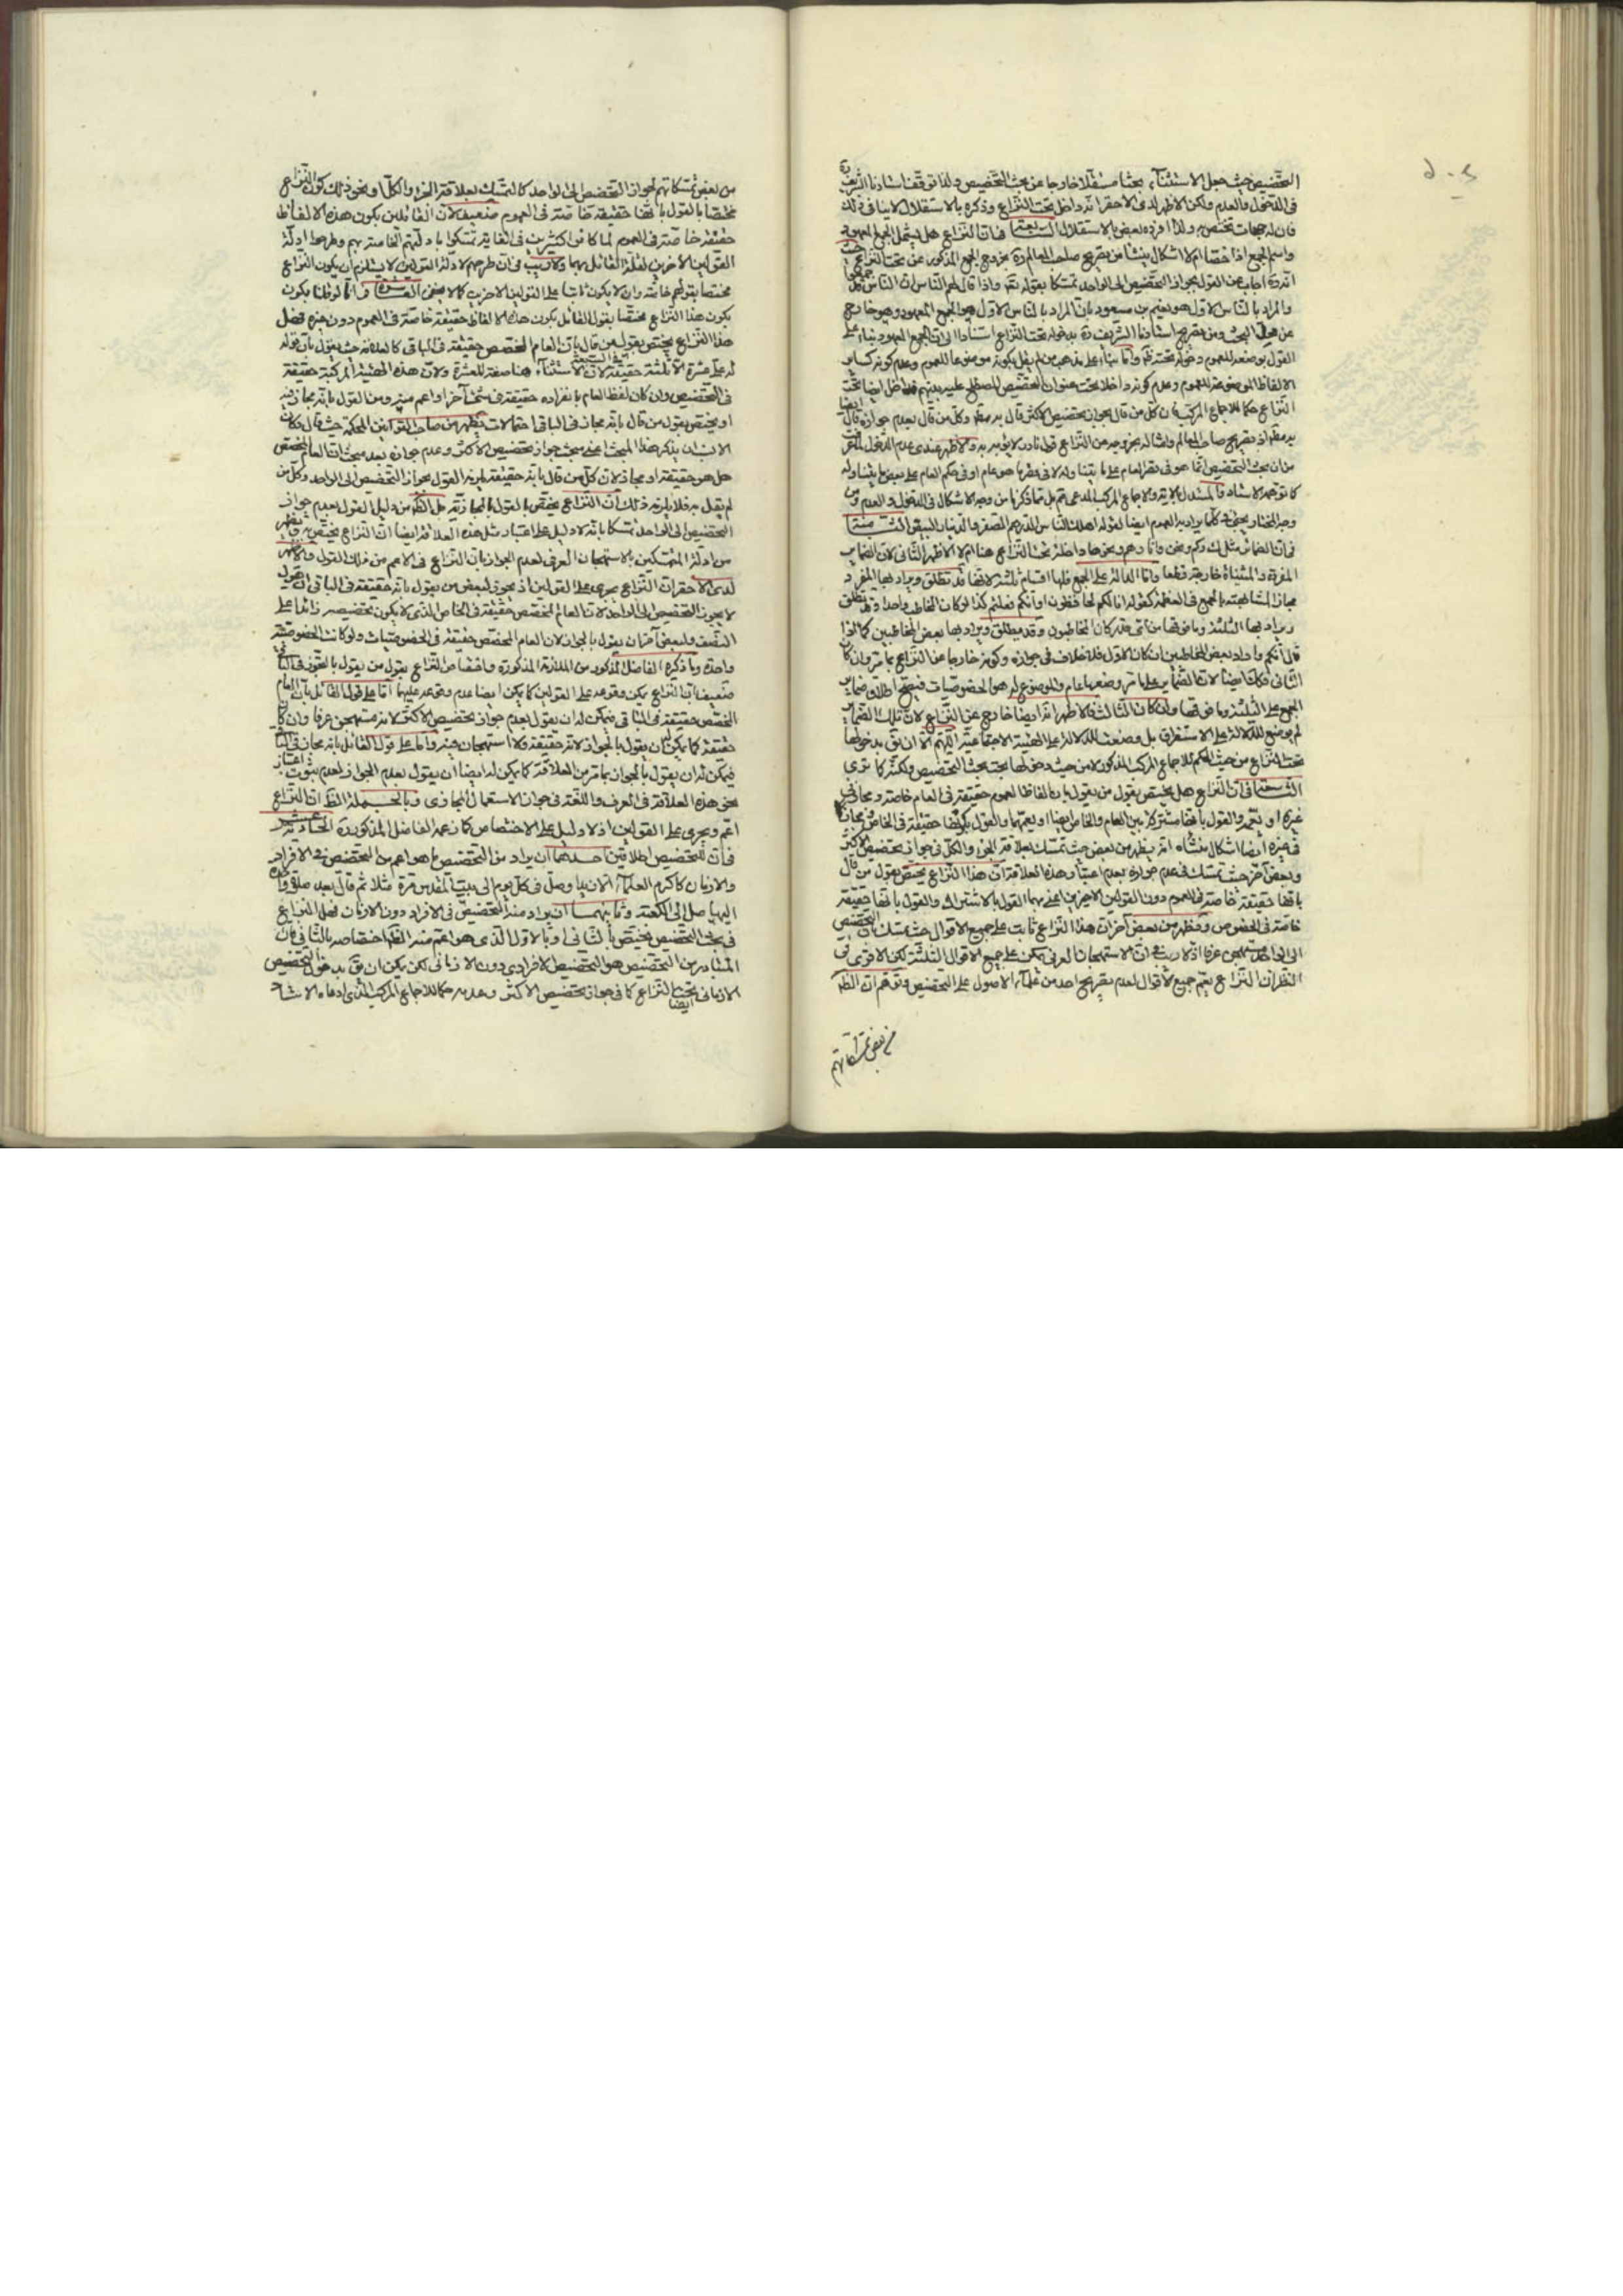 التخصيص حيث جعل الاستثناء بحثا مستقلا خارجا عن بحث التخصيص ولذا توقف استادنا الشريف ره
في الدخول والعدم ولكن الاظهر لدى الاحقر انه داخل تحت النزاع وذكره بالاستقلال لا ينافي ذلك
فان له جهات تختص به ولذا افرده بعض بالاستقلال فان النزاع هل يشمل الجمع المعهود
واسم الجمع اذا خصا ام لا اشكال ينشأ من تصريح صاحب المعالم ره بخروج الجمع المذكور عن تحت النزاع حيث
انه ره اجاب عن القول بجواز التخصيص الى الواحد تمسكا بقوله تعم واذا قال لهم الناس ان الناس قد جمعوا
والمراد بالناس الاول هو نعيم بن مسعود بان المراد بالناس الاول هو الجمع المعهود وهو خارج
عن محل البحث ومن تصريح استادنا الشريف ره بدخوله تحت النزاع استنادا الى ان الجمع المعهود بناء على
القول بوضعه للعموم دخوله تحته ظم واما بناء على مذهب من لم يقل بكونه موضوعا للعموم وعدم كونه كساير
الالفاظ الموضوعة للعموم وعدم كونه داخلا تحت عنوان التخصيص المصطلح عليه بينهم فداخل ايضا تحت
النزاع حكما للاجماع المركب فان كل من قال بجواز تخصيص الاكثر قال به مطلقا وكل من قال بعدم جوازه قال ايضا
به مطلقا وتصريح صاحب المعالم وامثاله بخروجه عن النزاع قول نادر لا يؤبه به والاظهر عندي عدم الدخول
من ان بحث التخصيص انما هو في قصر العام على ما يتناوله لا في قصر ما هو عام او في حكم العام على بعض ما يتناوله
كما توهمه الاستاد
فان الضمائر مثل ك وكم ونحن وانا وهم ونحوها داخلة تحت النزاع هنا ام لا الاظهر الثاني لان الضمائر
المفردة والمثناة خارجة قطعا واما الدالة على الجمع فلها اقسام ثلثة لانها قد تطلق ويراد بها المفرد
مجازا لمشابهته بالجمع في العظمة كقوله انا لكم لحافظون او انكم فعلتم كذا لو كان المخاطب واحدا وقد تطلق
ويراد بها الثلثة وما فوقها من اي قدر كان المخاطبون وقد يطلق ويراد بها بعض المخاطبين كما اذا
قال انكم واراد بعض المخاطبين ان كان الاول فلا خلاف في جوازه وكونه خارجا عن النزاع بما مر وان كان
الثاني فكك ايضا لان الضماير على ما مر وضعها عام والموضوع له هو الخصوصيات فيصح اطلاق ضماير
الجمع على الثلثة وما فوقها وان كان الثالث فالاظهر انه ايضا خارج عن النزاع لان تلك الضماير
لم يوضع للدلالة على الاستغراق بل وضعت للدلالة على الهيئة الاجتماعية اللهم الا ان يق بدخولها
تحت النزاع من حيث الحكم للاجماع المركب المذكور لا من حيث دخولها تحت بحث التخصيص ولكنه كما ترى
في ان النزاع هل يختص بقول من يقول بان الفاظ العموم حقيقة في العام خاصة ومجاز في
غيره او يعمه والقول بانها مشتركة بين العام والخاص ايضا او يعمهما والقول بكونها حقيقة في الخاص ومجازا
في غيره ايضا اشكال منشأه انه يظهر من بعض حيث تمسك بعلاقة الجزء والكل في جواز تخصيص الاكثر
وبعض آخر حيث تمسك في عدم جوازه بعدم اعتبار هذه العلاقة ان هذا النزاع يختص بقول من قال
بانها حقيقة خاصة في العموم دون القولين الاخرين اعني بهما القول بالاشتراك والقول بانها حقيقة
خاصة في الخصوص ويظهر من بعض آخر ان هذا النزاع ثابت على جميع الاقوال حيث تمسك بان التخصيص
الى الواحد مستهجن عرفا اذ لا ريب في ان الاستهجان العرفي يمكن على جميع الاقوال الثلثة لكن الاقوى في
النظر ان النزاع يعم جميع الاقوال لعدم تصريح احد من علماء الاصول على التخصيص وتوهم ان الظم
من بعض تمسكاتهم
من بعض تمسكاتهم لجواز التخصيص الى الواحد كالتمسك بعلاقة الجزء والكل او نحو ذلك كون النزاع
مختصا بالقول بانها حقيقة خاصة في العموم ضعيف لان القائلين بكون هذه الالفاظ
حقيقة خاصة في العموم لما كانوا كثيرين في الغاية تمسكوا بادلتهم الخاصة بهم وطرحوا ادلة
القولين الاخرين لقلة القائل بهما ولا ريب في ان طرحهم لادلة القولين لا يستلزم ان يكون النزاع
مختصا بقولهم خاصة وان لا يكون ثابتا على القولين الاخرين كما لا يخفى في انا لو قلنا بكون
يكون هذا النزاع مختصا بقول القائل بكون هذه الالفاظ حقيقة خاصة في العموم دون غيره فهل
هذا النزاع يختص بقول من قال بان العام المخصص حقيقة في الباقي كالعلامة حيث يقول بان قوله
له علي عشرة الا ثلثة حقيقة لان الاستثناء هنا صفة للعشرة ولان هذه الهيئة المركبة حقيقة
في التخصيص وان كان لفظ العام بانفراده حقيقة في شيء آخر او اعم منه ومن القول بانه مجاز فيه
او يختص بقول من قال بانه مجاز في الباقي احتمالات يظهر من صاحب القوانين المحكمة حيث قال وكان
الانسب ان يذكر هذا المبحث اعني مبحث جواز تخصيص الاكثر وعدم جوازه بعد مبحث ان العام المخصص
هل هو حقيقة او مجاز لان كل من قال بانه حقيقة يلزمه القول بجواز التخصيص الى الواحد وكل من
لم يقل به فلا يلزمه وذلك ان النزاع يختص بالقول بالمجازية بل الظم من دليل القول بعدم جواز
التخصيص الى الواحد تمسكا بانه لا دليل على اعتبار مثل هذه العلاقة ايضا ان النزاع يختص به ويظهر
من ادلة المتمسكين بالاستهجان العرفي لعدم الجواز بان النزاع في الاعم من ذلك القول والاظهر
لدى الاحقر ان النزاع يجري على القولين اذ يجوز لبعض من يقول بانه حقيقة في الباقي ان يقول
لا يجوز التخصيص الى الواحد لان العام المخصص حقيقة في الخاص الذي لا يكون تخصيصه زائدا على
النصف ولبعض آخر ان يقول بالجواز لان العام المخصص حقيقة في الخصوصيات ولو كانت الخصوصية
واحدة وما ذكره الفاضل المذكور من الملازمة المذكورة واختصاص النزاع بقول من يقول بالتجوز في الباقي
ضعيف بان النزاع يمكن وقوعه على القولين كما يمكن ايضا عدم وقوعه عليهما اما على قول القائل بان العام
المخصص حقيقة في الباقي فيمكن له ان يقول بعدم جواز تخصيص الاكثر لانه مستهجن عرفا وان كان
حقيقة كما يمكن له ان يقول بالجواز لانه حقيقة ولا استهجان فيه واما على قول القائل بانه مجاز في الباقي
فيمكن له ان يقول بالجواز بما مر من العلاقة كما يمكن له ايضا ان يقول بعدم الجواز لعدم ثبوت اعتبار
نحو هذه العلاقة في العرف واللغة في جواز الاستعمال المجازي وبالجملة الظم ان النزاع
اعم ويجري على القولين اذ لا دليل على الاختصاص كما زعمه الفاضل المذكور ره الحادية عشر
في ان للتخصيص اطلاقين احدهما ان يراد من التخصيص ما هو اعم من التخصيص في الافراد
والازمان كاكرم العلماء الا زيدا وصل في كل يوم الى بيت المقدس مرة مثلا ثم قال بعد صلوة واحدة
اليها صل الى الكعبة وثانيهما ان يراد منه التخصيص في الافراد دون الازمان فهل النزاع
في بحث التخصيص يختص بالثاني او بالاول الذي هو اعم منه الظم اختصاصه بالثاني فان
المتبادر من التخصيص هو التخصيص الافرادي دون الازماني لكن يمكن ان يق بدخول التخصيص
الازماني تحت النزاع ايضا كما في جواز تخصيص الاكثر وعدمه حكما للاجماع المركب الذي ادعاه الاستاد